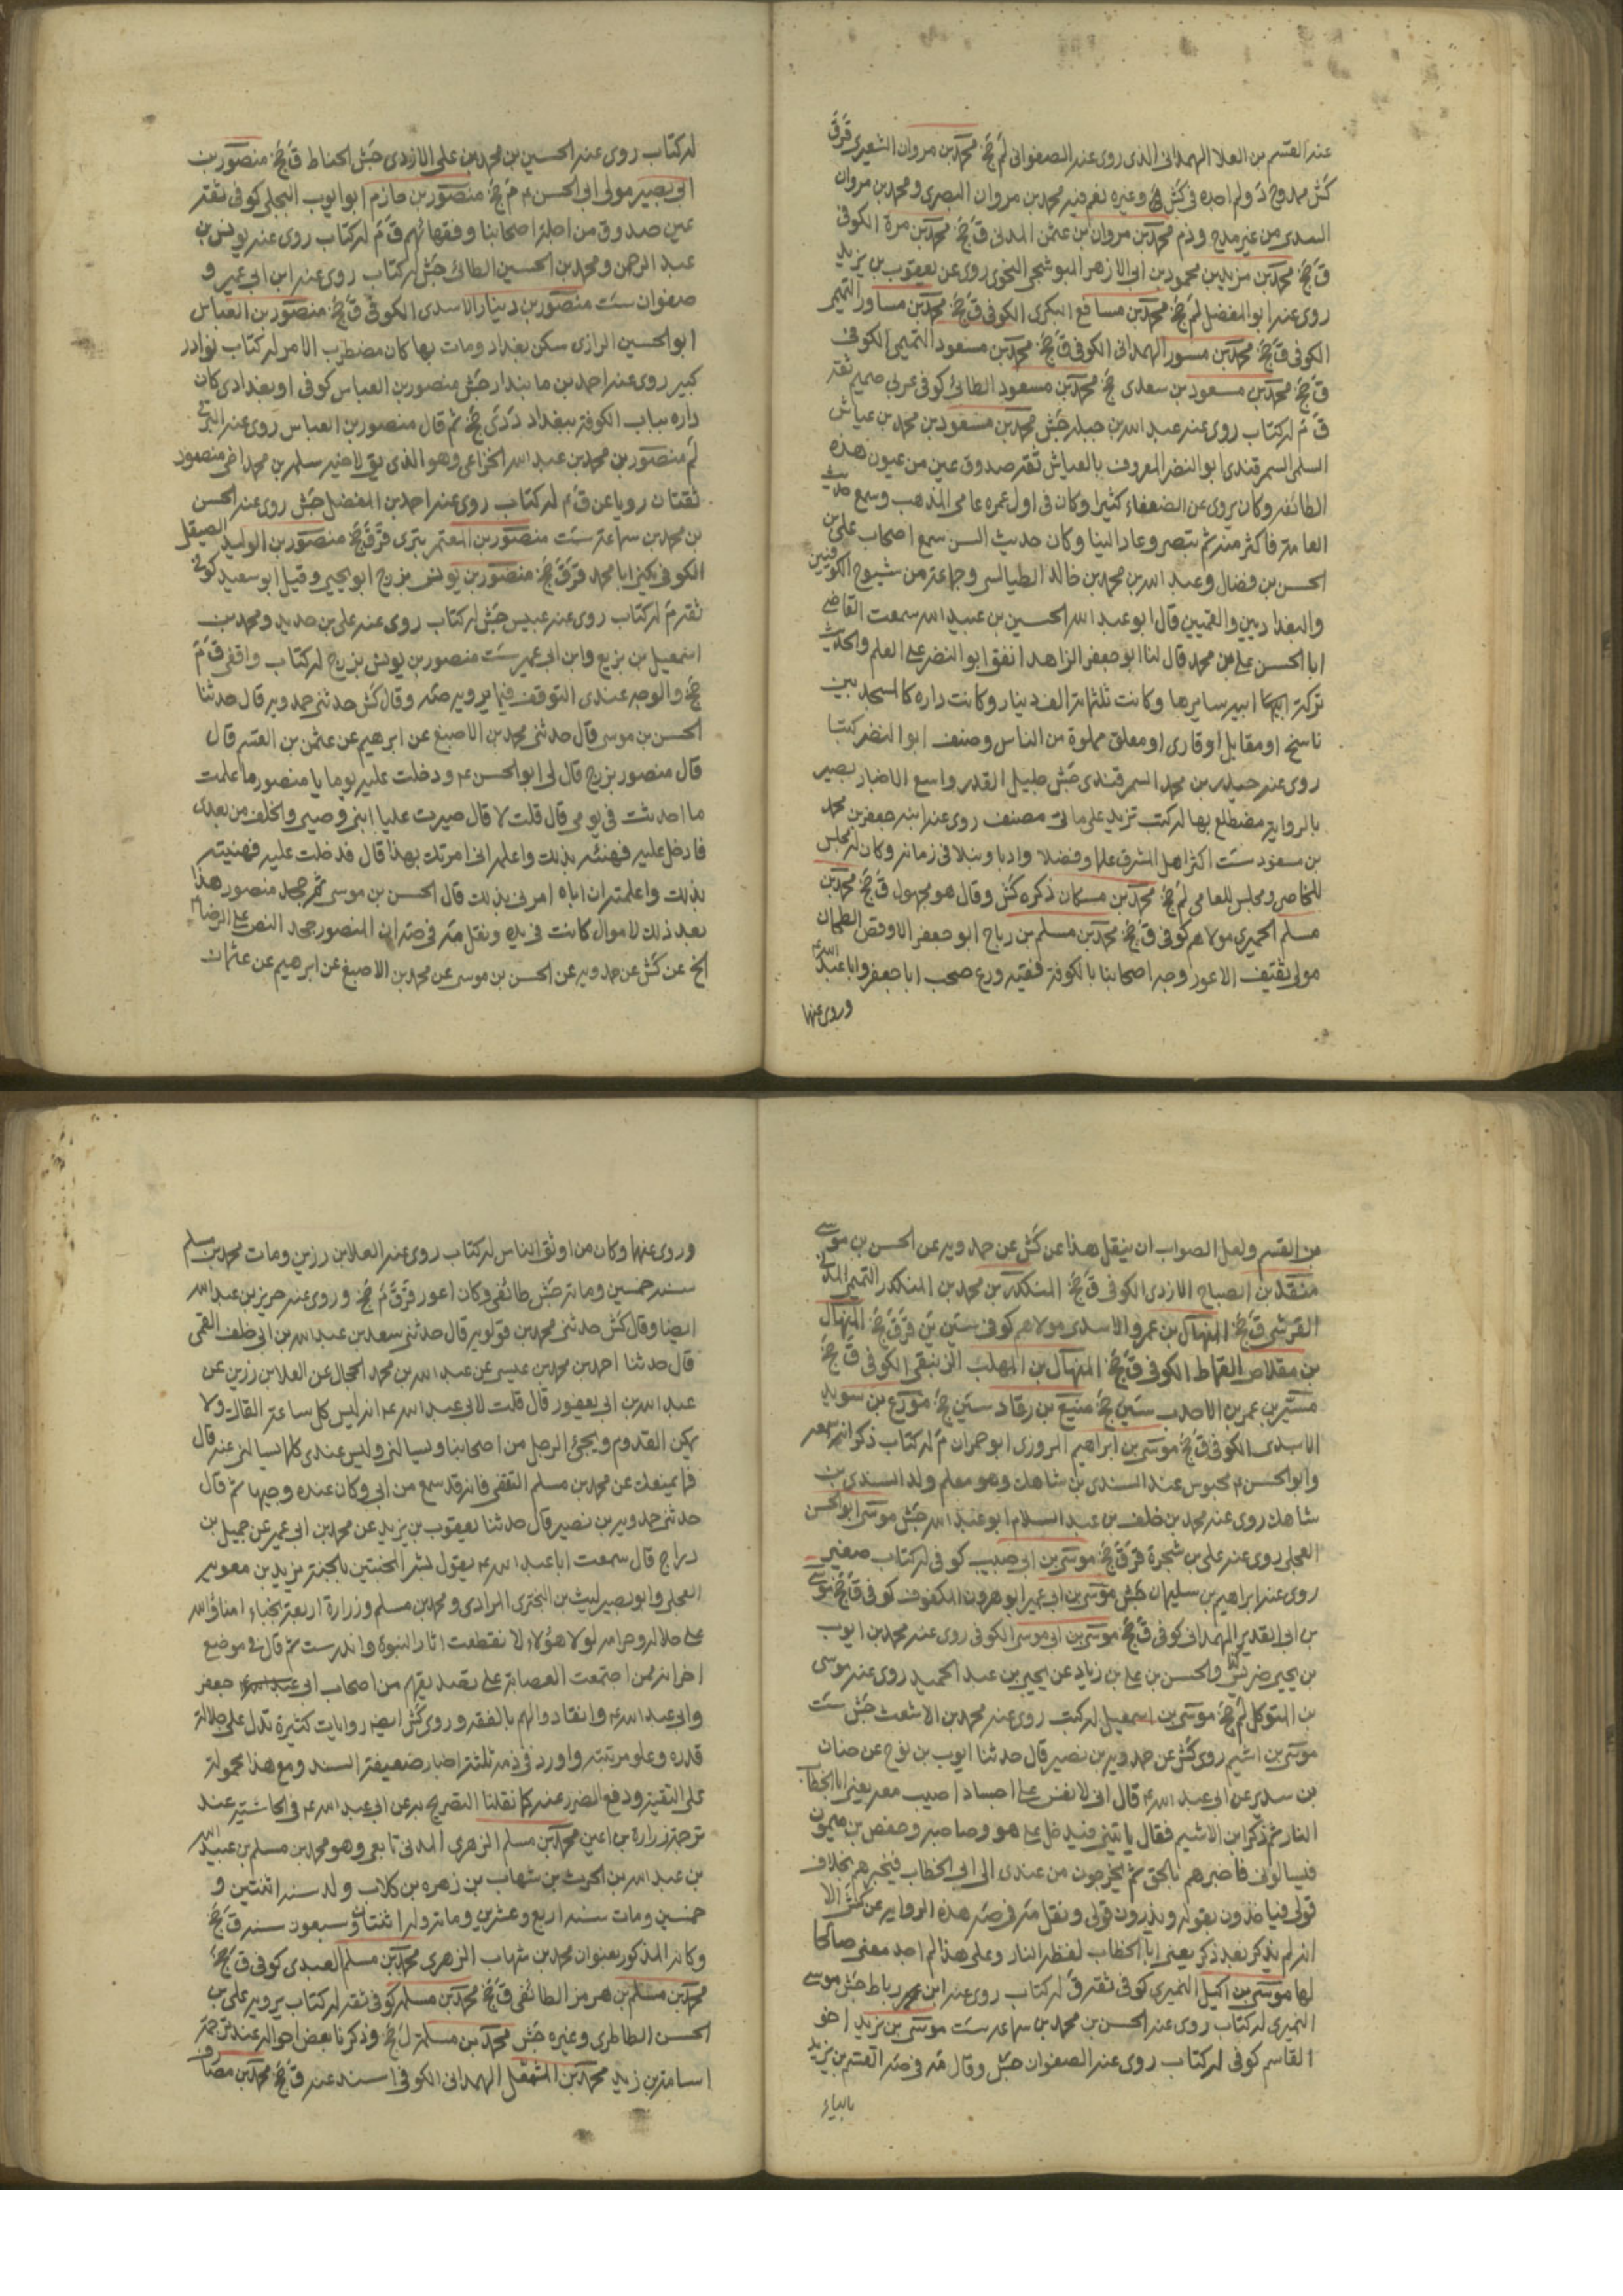 عنه القسم بن العلا الهمدانى الذى روى عنه الصفوانى لم جخ محمد بن مروان الشعيرى ق ق
كش ممدوح د ولم اجده فى كش جخ وغيره نعم فيه محمد بن مروان البصرى ومحمد بن مروان
السدى من غير مدح وذم محمد بن مروان بن عثمن المدنى ق جخ محمد بن مرة الكوفى
ق جخ محمد بن مزيد بن محمود بن ابى الازهر البوشنجى النحوى روى عن يعقوب بن يزيد
روى عنه ابو المفضل لم جخ محمد بن مسافع البكرى الكوفى ق جخ محمد بن مساور التميمى
الكوفى ق جخ محمد بن مسور الهمدانى الكوفى ق جخ محمد بن مسعود التميمى الكوفى
ق جخ محمد بن مسعود بن سعدى جخ محمد بن مسعود الطائى كوفى عربى صميم ثقة
ق م له كتاب روى عنه عبد الله بن جبلة جش محمد بن مسعود بن محمد بن عياش
السلمى السمرقندى ابو النضر المعروف بالعياشى ثقة صدوق عين من عيون هذه
الطائفة وكان يروى عن الضعفاء كثيرا وكان فى اول عمره عامى المذهب وسمع حديث
العامة فاكثر منه ثم تبصر وعاد الينا وكان حديث السن سمع اصحاب على بن
الحسن بن فضال وعبد الله بن محمد بن خالد الطيالسى وجماعة من شيوخ الكوفيين
والبغداديين والقميين قال ابو عبد الله الحسين بن عبيد الله سمعت القاضى
ابا الحسن على بن محمد قال لنا ابو جعفر الزاهد انفق ابو النضر على العلم والحديث
تركة ابيه سايرها وكانت ثلثمائة الف دينار وكانت داره كالمسجد بين
ناسخ او مقابل او قارى او معلق مملوة من الناس وصنف ابو النضر كتبا
روى عنه حيدر بن محمد السمرقندى جش جليل القدر واسع الاخبار بصير
بالرواية مضطلع بها له كتب تزيد على مائتى مصنف روى عنه ابنه جعفر بن محمد
بن مسعود ست اكثر اهل المشرق علما وفضلا وادبا ونبلا فى زمانه وكان له مجلس
للخاصى ومجلس للعامى لم جخ محمد بن مسكان ذكره كش وقال هو مجهول ق جخ محمد بن
مسلم الحميرى مولاهم كوفى ق جخ محمد بن مسلم بن رباح ابو جعفر الاوقص الطحان
مولى ثقيف الاعور وجه اصحابنا بالكوفة فقيه ورع صحب ابا جعفر وابا عبد الله
وروى عنهما
له كتاب روى عنه الحسين بن محمد بن على الازدى جش الحناط ق جخ منصور بن
ابى بصير مولى ابى الحسن م جخ منصور بن حازم ابو ايوب البجلى كوفى ثقة
عين صدوق من اجلة اصحابنا وفقهائهم ق م له كتاب روى عنه يونس بن
عبد الرحمن ومحمد بن الحسين الطائى جش له كتاب روى عنه ابن ابى عمير و
صفوان ست منصور بن دينار الاسدى الكوفى ق جخ منصور بن العباس
ابو الحسين الرازى سكن بغداد ومات بها كان مضطرب الامر له كتاب نوادر
كبير روى عنه احمد بن مابندار جش منصور بن العباس كوفى او بغدادى كان
داره بباب الكوفة ببغداد د دى جخ ثم قال منصور بن العباس روى عنه البرقى
لم منصور بن محمد بن عبد الله الخزاعى وهو الذى يق لاخيه سلمة بن محمد اخى منصور
ثقتان رويا عن ق م له كتاب روى عنه احمد بن المفضل جش روى عنه الحسن
بن محمد بن سماعة ست منصور بن المعتمر بترى قر ق جخ منصور بن الوليد الصيقل
الكوفى يكنى ابا محمد قر ق جخ منصور بن يونس بزرج ابو يحيى وقيل ابو سعيد كوفى
ثقة م له كتاب روى عنه عبيس جش له كتاب روى عنه على بن حديد ومحمد بن
اسمعيل بن بزيع وابن ابى عمير ست منصور بن يونس بزرج له كتاب واقفى ق م
جخ والوجه عندى التوقف فيما يرويه صه وقال كش حدثنى حمدويه قال حدثنا
الحسن بن موسى قال حدثنى محمد بن الاصبغ عن ابرهيم عن عثمن بن القسم قال
قال منصور بزرج قال لى ابو الحسن ع ودخلت عليه يوما يا منصور ما علمت
ما احدثت فى يومى قال قلت لا قال صيرت عليا ابنى وصيى والخلف من بعدى
فادخل عليه فهنئه بذلك واعلمه انى امرتك بهذا قال فدخلت عليه فهنيته
بذلك واعلمته ان اباه امرنى بذلك قال الحسن بن موسى ثم جحد منصور هذا
بعد ذلك لاموال كانت فى يده ونقل مة فى صه ان المنصور جحد النص على الرضا ع
الخ عن كش عن حمدويه عن الحسن بن موسى عن محمد بن الاصبغ عن ابرهيم عن عثمان
من القسم ولعل الصواب ان ينقل هذا عن كش عن حمدويه عن الحسن بن موسى
منقذ بن الصباح الازدى الكوفى ق جخ المنكدر بن محمد بن المنكدر التميمى المدنى
القرشى ق جخ المنهال بن عمرو الاسدى مولاهم كوفى سين ين قر ق جخ المنهال
بن مقلاص القماط الكوفى ق جخ المنهال بن المهلب الزينبقى الكوفى ق جخ
منير بن عمر بن الاحدب سين جخ منيع بن رقاد سين جخ مورع بن سويد
الاسدى الكوفى ق جخ موسى بن ابراهيم المروزى ابو حمران م له كتاب ذكر انه سمعه
وابو الحسن ع محبوس عند السندى بن شاهك وهو معلم ولد السندى بن
شاهك روى عنه محمد بن خلف بن عبد السلام ابو عبد الله جش موسى ابو الحسن
العجلى روى عنه على بن شجرة قر ق جخ موسى بن ابى حبيب كوفى له كتاب صغير
روى عنه ابراهيم بن سليمان جش موسى بن ابى عمير ابو هرون المكفوف كوفى ق جخ موسى
بن ابى الغدير الهمدانى كوفى ق جخ موسى بن ابى موسى الكوفى روى عنه محمد بن ايوب
بن يحيى ضريس والحسن بن على بن زياد عن يحيى بن عبد الحميد روى عنه موسى
بن المتوكل لم جخ موسى بن اسمعيل له كتب روى عنه محمد بن الاشعث جش ست
موسى بن اشيم روى كش عن حمدويه بن نصير قال حدثنا ايوب بن نوح عن حنان
بن سدير عن ابى عبد الله ع قال انى لانفس على اجساد اصيب معه يعنى ابا الخطاب
النار ثم ذكر ابن الاشيم فقال ياتينى فيدخل على هو وصاحبه وحفص بن ميمون
فيسالونى فاخبرهم بالحق ثم يخرجون من عندى الى ابى الخطاب فيخبرهم بخلاف
قولى فياخذون بقوله ويذرون قولى ونقل مة فى صه هذه الرواية عن كش الا
انه لم يذكر بعد ذكر يعنى ابا الخطاب لفظ النار وعلى هذا لم اجد معنى صالحا
لها موسى بن اكيل النميرى كوفى ثقة ق له كتاب روى عنه ابن رباط جش موسى
النميرى له كتاب روى عنه الحسن بن محمد بن سماعة ست موسى بن يزيد اخو
القاسم كوفى له كتاب روى عنه الصفوان جش وقال مة فى صه القسم بن يزيد
بالياء
وروى عنهما وكان من اوثق الناس له كتاب روى عنه العلا بن رزين ومات محمد بن مسلم
سنة خمسين ومائة جش طائفى وكان اعور قر ق م جخ وروى عنه حريز بن عبد الله
ايضا وقال كش حدثنى محمد بن قولويه قال حدثنى سعد بن عبد الله بن ابى خلف القمى
قال حدثنا احمد بن محمد بن عيسى عن عبد الله بن محمد الحجال عن العلا بن رزين عن
عبد الله بن ابى يعفور قال قلت لابى عبد الله ع انه ليس كل ساعة القاك ولا
يمكن القدوم ويجئ الرجل من اصحابنا ويسالنى وليس عندى كلما يسالنى عنه قال
فما يمنعك عن محمد بن مسلم الثقفى فانه قد سمع من ابى وكان عنده وجيها ثم قال
حدثنى حمدويه بن نصير قال حدثنا يعقوب بن يزيد عن محمد بن ابى عمير عن جميل بن
دراج قال سمعت ابا عبد الله ع يقول بشر المخبتين بالجنة بريد بن معوية
العجلى وابو بصير ليث بن البخترى المرادى ومحمد بن مسلم وزرارة اربعة نجباء امناؤ الله
على حلاله وحرامه لولا هؤلاء لانقطعت اثار النبوة واندرست ثم قال فى موضع
اخر انه ممن اجتمعت العصابة على تصديقهم من اصحاب ابى جعفر
وابى عبد الله ع وانقادوا لهم بالفقه وروى كش ايضه روايات كثيرة تدل على جلالة
قدره وعلو مرتبته واورد فى ذمه ثلثة اخبار ضعيفة السند ومع هذا محمولة
على التقية ودفع الضرر عنه كما نقلنا التصريح به عن ابى عبد الله ع فى الحاشية عند
ترجمة زرارة بن اعين محمد بن مسلم الزهرى المدنى تابعى وهو محمد بن مسلم بن عبيد الله
بن عبد الله بن الحرث بن شهاب بن زهره بن كلاب ولد سنة اثنتين و
خمسين ومات سنة اربع وعشرين ومائة وله اثنتان وسبعون سنة ق جخ
وكانه المذكور بعنوان محمد بن شهاب الزهرى محمد بن مسلم العبدى كوفى ق جخ
محمد بن مسلم بن هرمز الطائفى ق جخ محمد بن مسلمة كوفى ثقة له كتاب يرويه على بن
الحسن الطاطرى وغيره جش محمد بن مسلمة ل جخ وذكرنا بعض احواله عند ترجمة
اسامة بن زيد محمد بن المشمعل الهمدانى الكوفى اسند عنه ق جخ محمد بن مصادف